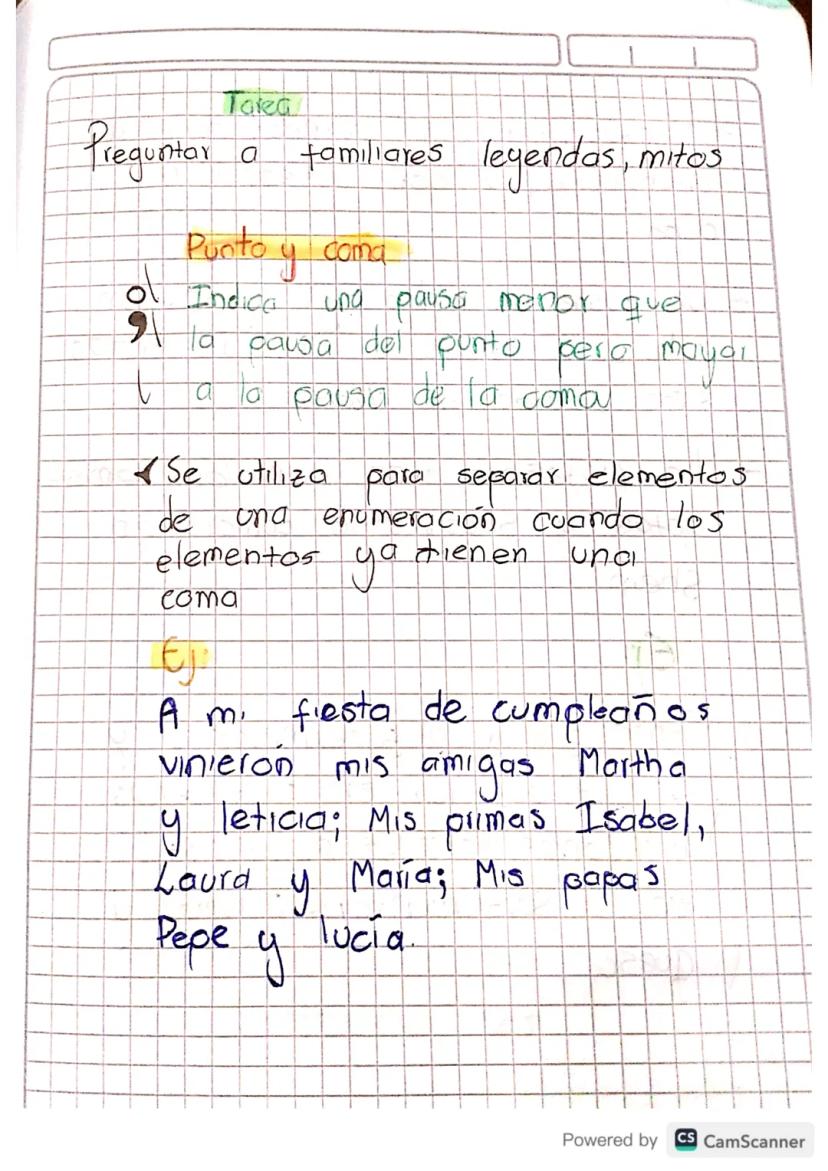 Tarea
Preguntar a familiares leyendas, mitos
Punto y coma
Indica una pausa menor que
la pausa del punto pero mayor
a la pausa de la coma
Se utiliza para separar elementos
de una enumeración cuando los
elementos ya tienen una
coma
Ej:
A mi fiesta de cumpleaños
vinierón mis amigas Martha
y leticia; Mis primas Isabel,
Laura y María; Mis papas
Pepe y lucía.
Powered by CS CamScanner